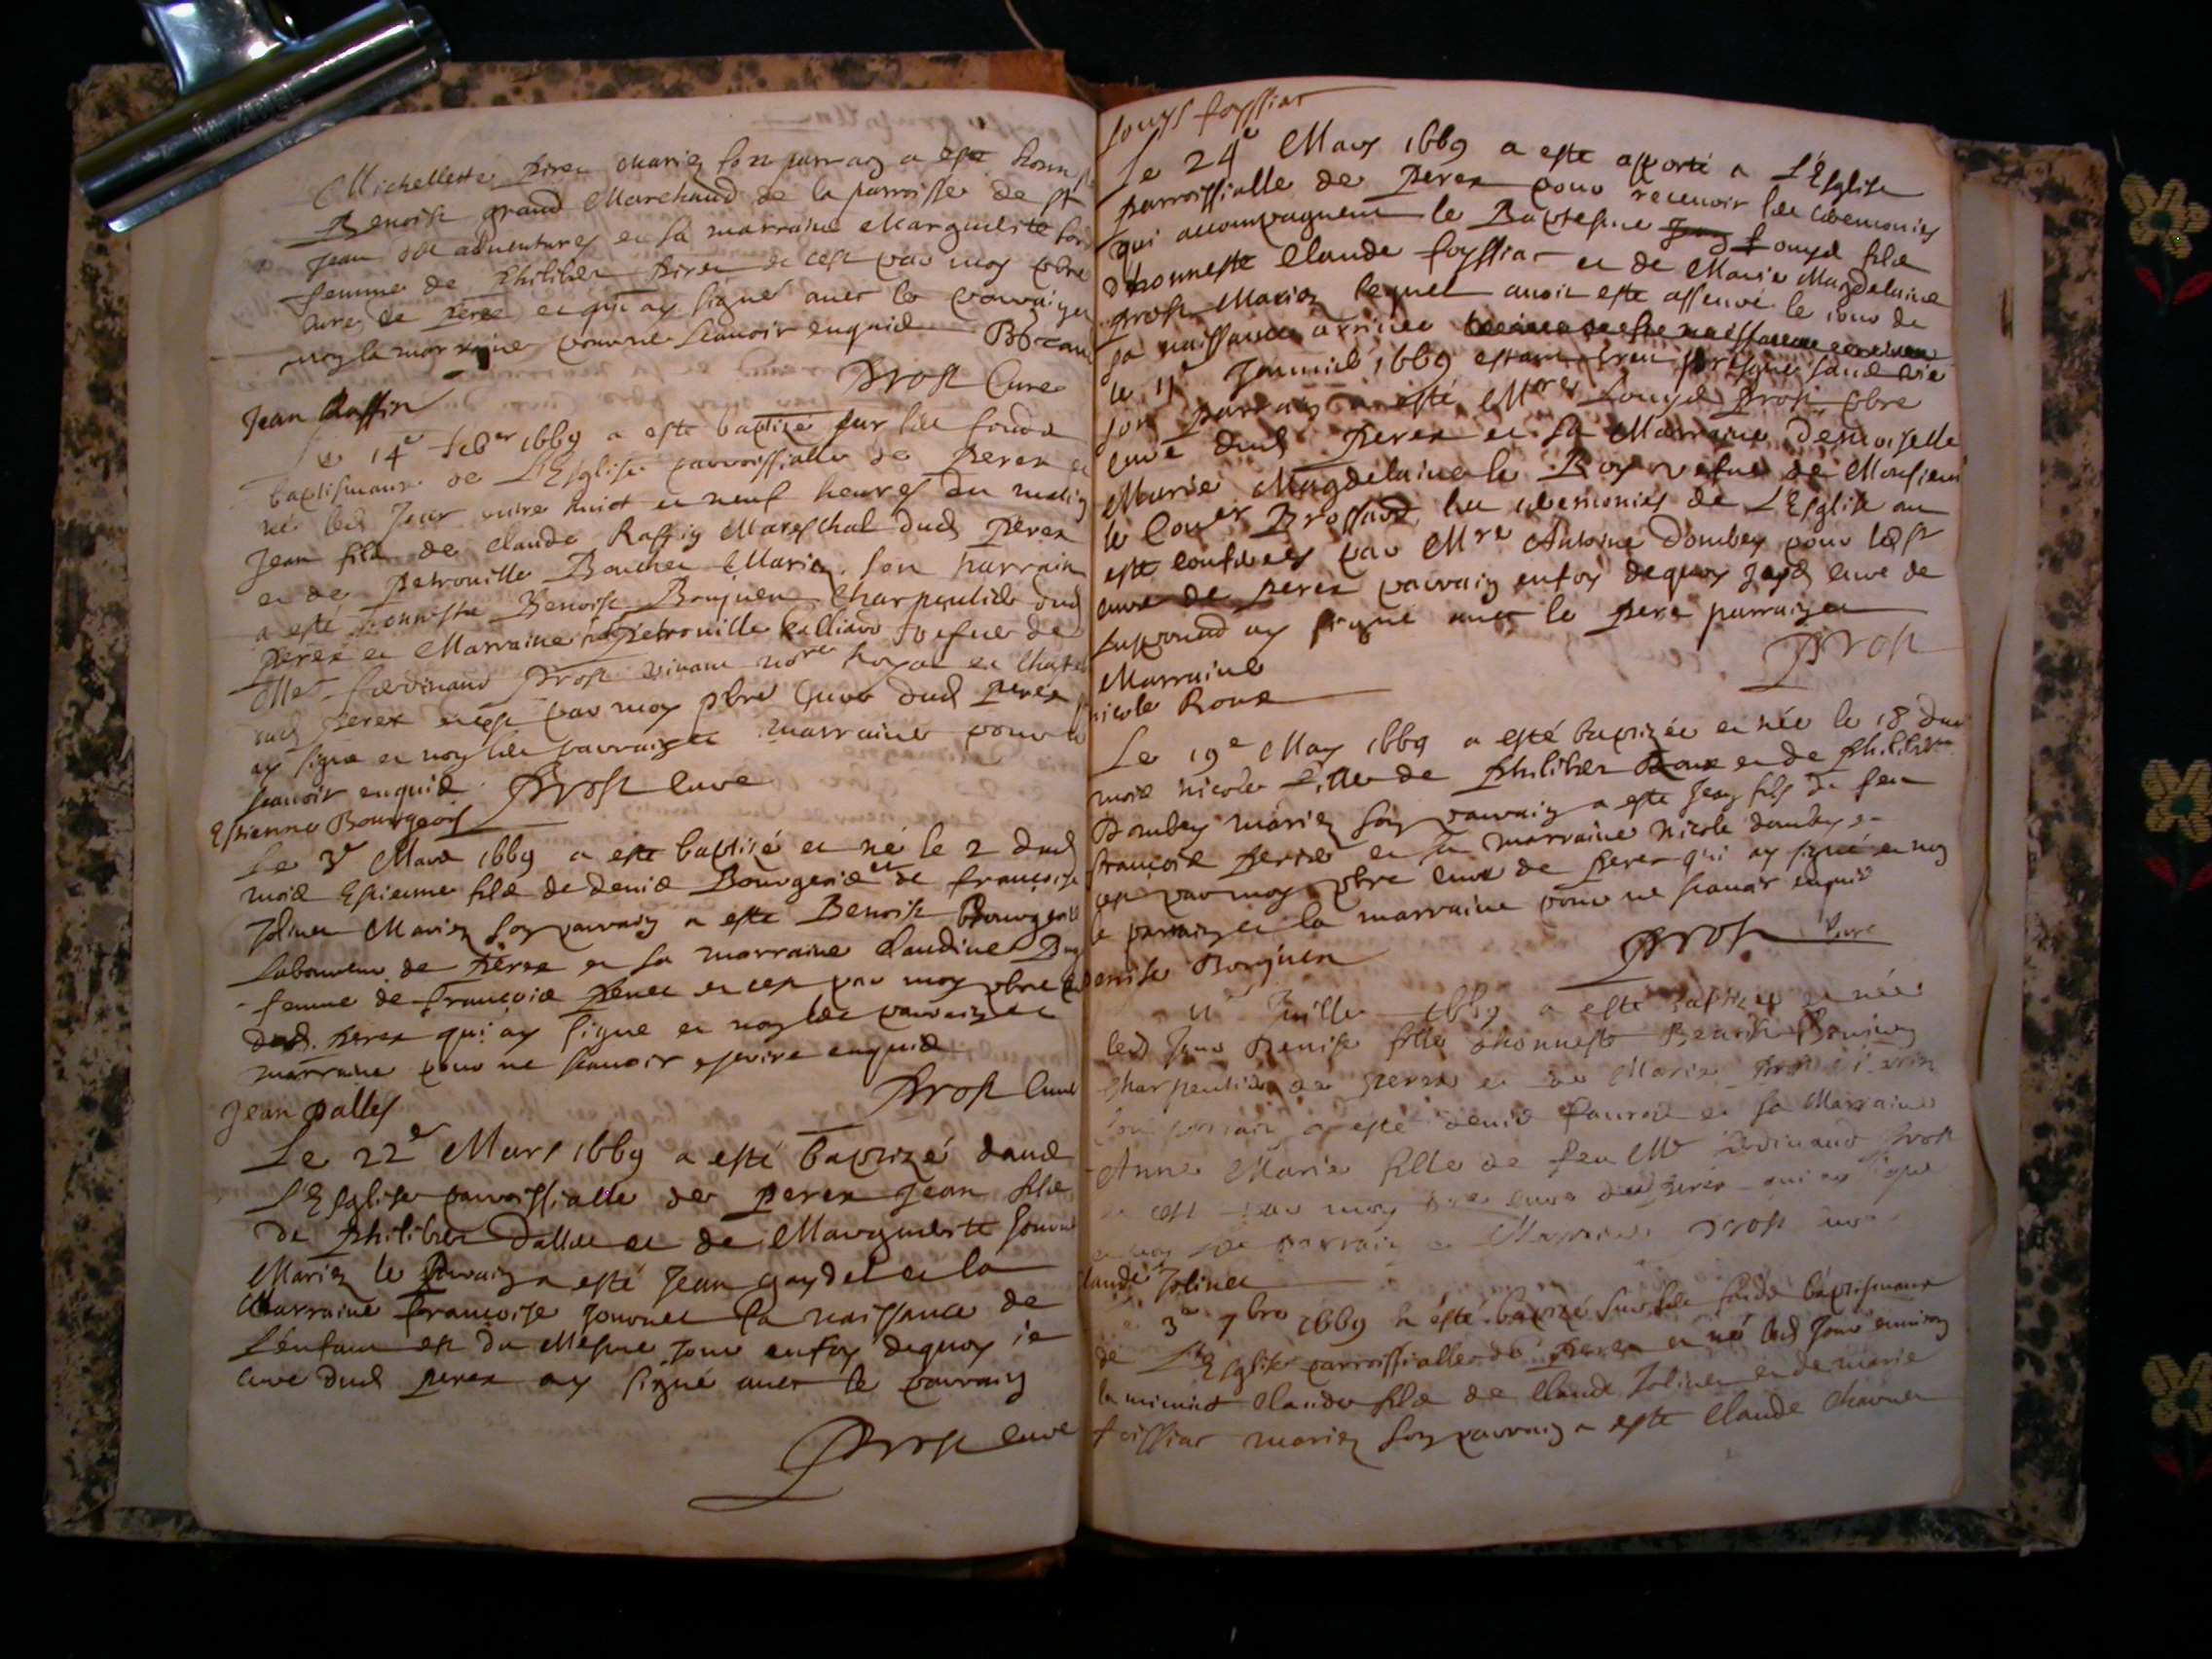 Michellette Piret mariez son parrain a esté honneste
Benoist grand Marchand de la parroisse de St
Jean des adventures et sa marraine Marguerite
femme de Philibert Piret et cest par moy pbre
Curé de Perex et qui ay signé avec le parrain et
non la marraine pour ne scavoir enquis
Prost Curé
Jean Raffin
Le 14e feber 1669 a esté baptizé sur les fonds
baptismaux de L'Esglise parroissialle de Perex et
né led Jour entre huict et neuf heures du matin
Jean fils de Claude Raffin Mareschal dud Perex
et de Petronille Boucher Mariez son parrain
a esté honneste Benoist Bonjuen Charpentier dud
Perex et Marraine Petronille Galliard vefue de
Me Ferdinand Prost vivant nore Royal et Chatel
dud Perex et cest par moy pbre Curé dud Perex
ay signé et non les parrain et marraine pour ne
scavoir enquis Prost Curé
Estienne Bourgeois
Le 3e Mars 1669 a esté baptisé et né le 2 dud
mois Estienne fils de denis Bourgeois et de françoise
Jolinet Mariez son parrain a esté Benoist Bourgeois
Laboureur de Perex et sa marraine Claudine
femme de françois Penet et cest par moy pbre Curé
dud. Perex qui ay signé et non les parrain et
marraine pour ne scavoir escrire enquis
Prost Curé
Jean dalles
Le 22e Mars 1669 a esté baptizé dans
L'Esglise parroissialle de Perex Jean fils
de Philibert Dalles et de Marguerite
Mariez le Parrain a esté Jean Gaydel et la
Marraine françoise Jouvnet la naissance de
L'enfant est du Mesme Jour en foy dequoy ie
Curé dud Perex ay signé avec le parrain
Prost Curé
Louys foyssiat
Le 24e Mars 1669 a esté apporté a L'Esglise
parroissialle de Perex pour recevoir les ceremonies
qui accompagnent le Baptesme Louys fils
d'honneste Claude foyssiat et de Marie Magdelaine
Prost Mariez lequel avoit esté assuré le iour de
sa naissance arrivée
le 11 Janvier 1669 estant presque sans vie
son parrain a esté Mre Louys Prost pbre
Curé dud Perex et sa Marraine demoiselle
Marie Magdelaine le Roy vefue de Monsieur
le Coner Brossard les ceremonies de L'Esglise ont
esté conferées par Mre Antoine Dombey pour lors
curé de Perex parrain en foy dequoy Jayd Curé de
ay signé avec le pere parrain et
Marraine
Prost
nicole Roux
Le 19e May 1669 a esté baptizée et née le 18 dud
mois nicole fille de Philibert Roux et de Philiberte
Dombey mariez son parrain a esté Jean fils de feu
françois Perier et sa marraine Nicole dombey et
cest par moy pbre Curé de Perex qui ay signé et non
le parrain et la marraine pour ne scavoir enquis
Prost Curé
denise Bonjuen
11 Juillet 1669 a esté baptizée et née
led Jour Denise fille d'honneste Benoist Bonjuen
Charpentier de Perex et de Marie
son parrain a esté denis et sa Marraine
Anne Marie fille de feu Me Ferdinand Prost
et cest par moy pbre curé dud Perex qui ay signé
et non les parrain et Marraine Prost curé
Claude Jolinet
Le 3e 7bre 1669 a esté baptizé sur les fonds baptismaux
de L'Esglise parroissialle de Perex et né led Jour environ
la minuit Claude fils de Claude Jolinet et de marie
foissiat mariez son parrain a esté Claude Chavnet